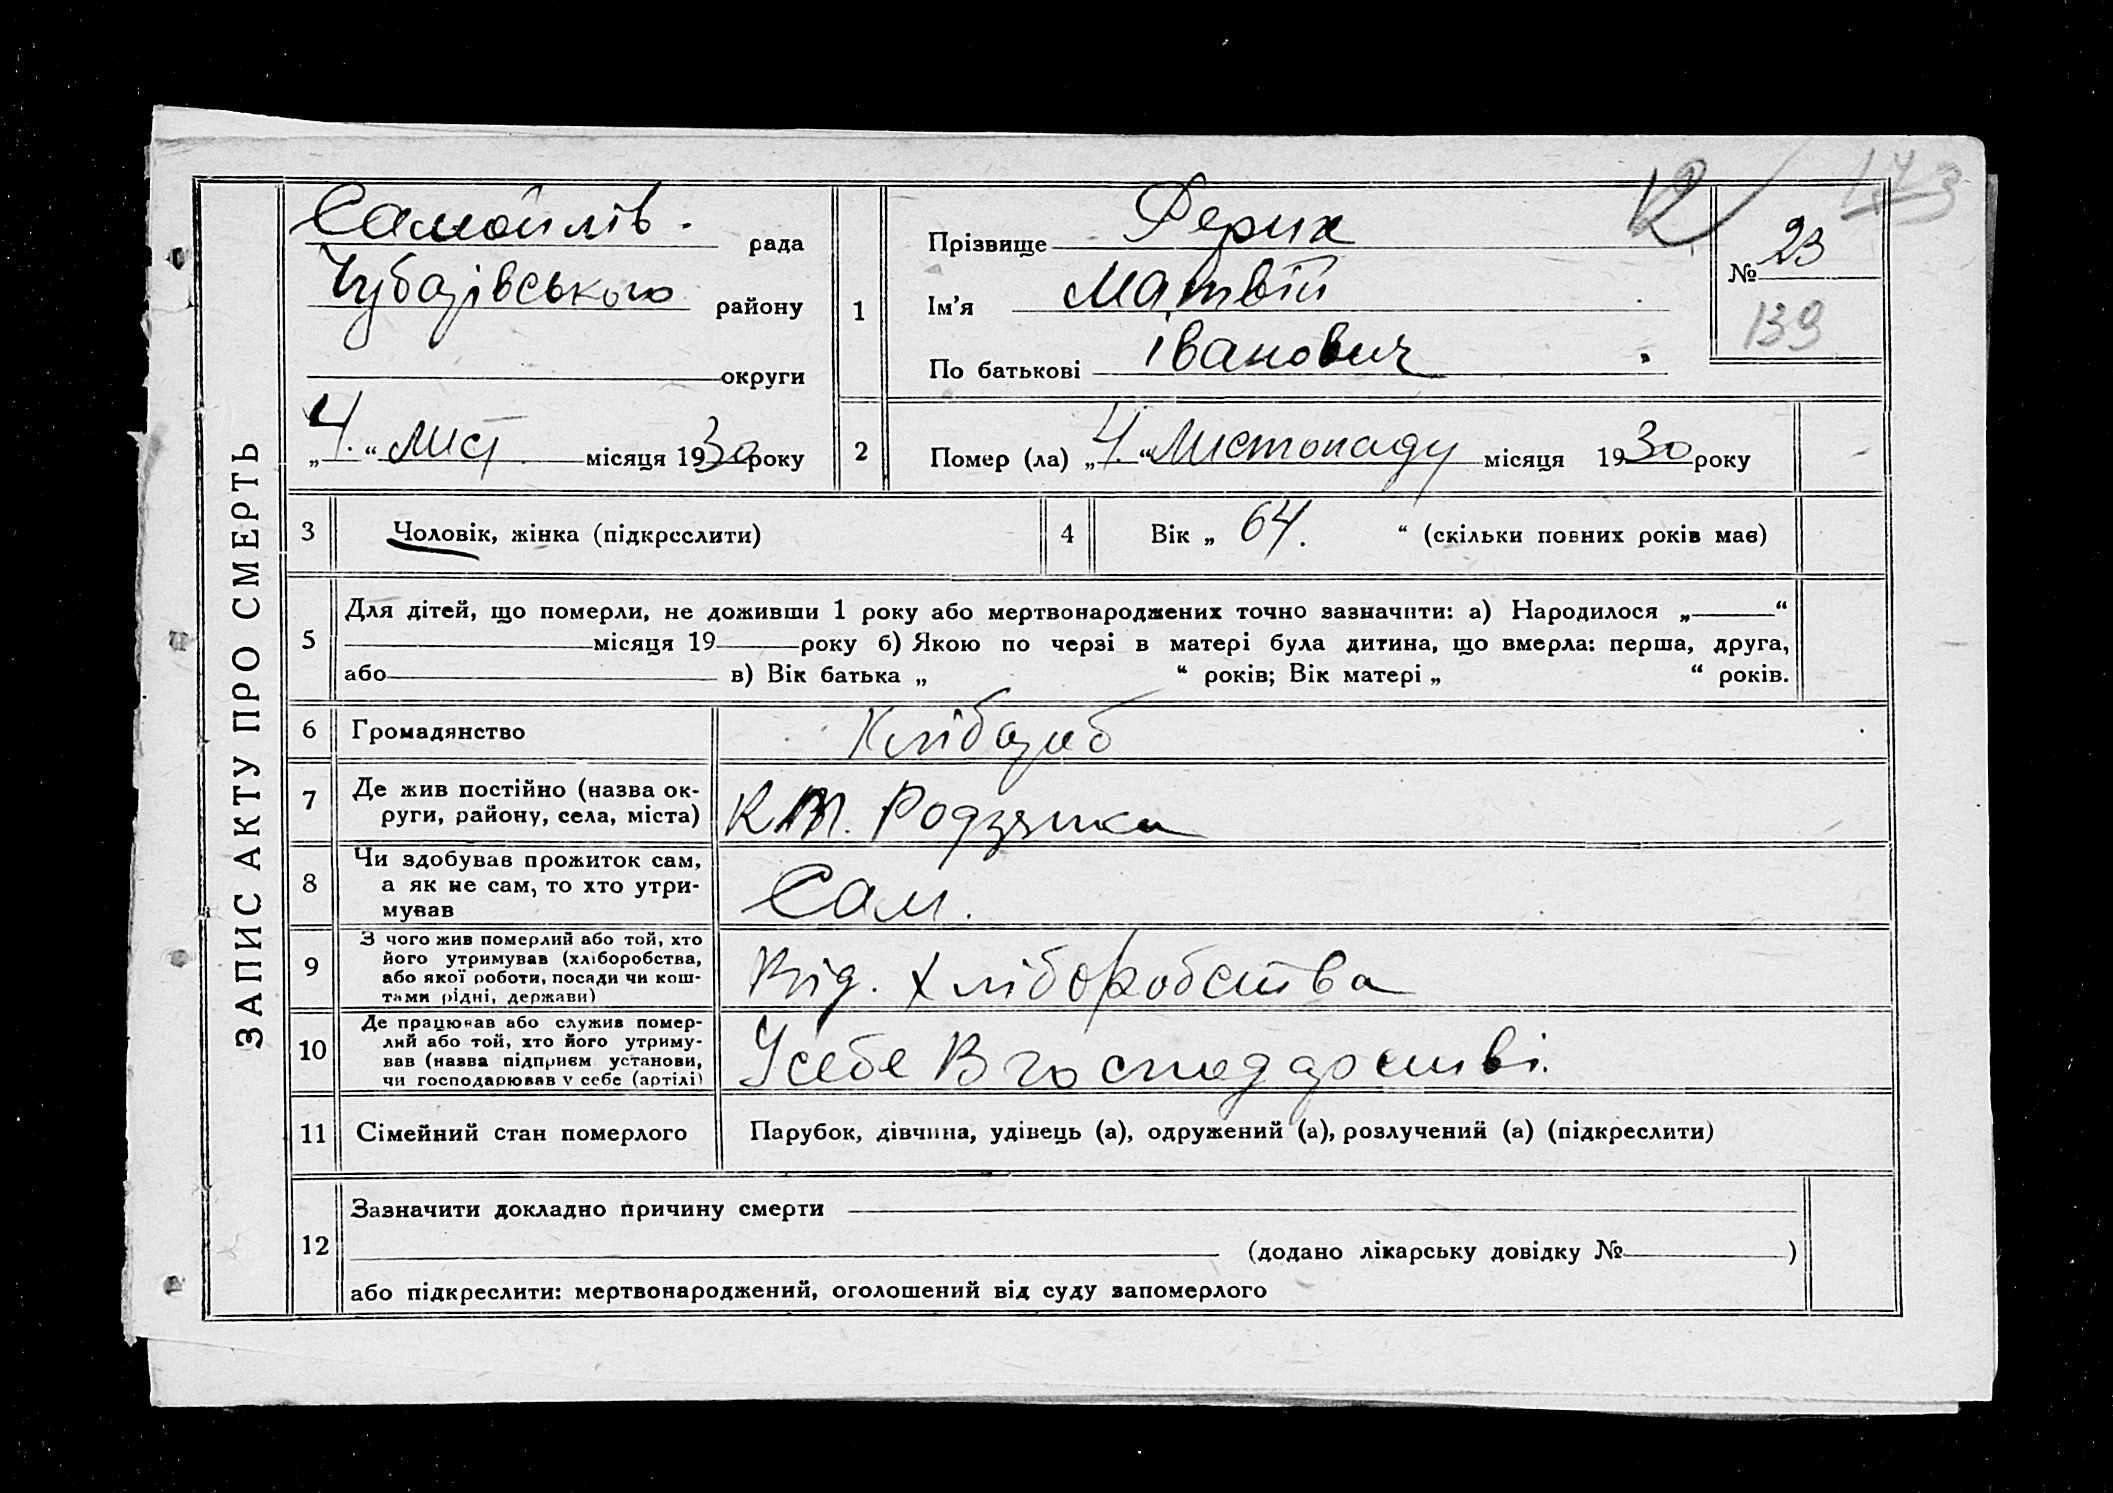 173
ЗАПИС АКТУ ПРО СМЕРТЬ
Самойлів. рада
Чубарівського району
округи
„4.“ лист. місяця 1930 року
1
Прізвище Ферих
Ім'я Матвій
По батькові Іванович
№ 23
139
2
Помер (ла) „4.“ Листопаду місяця 1930 року
3 Чоловік, жінка (підкреслити)
4 Вік „ 64. “ (скільки повних років має)
5
Для дітей, що померли, не доживши 1 року або мертвонароджених точно зазначити: а) Народилося „ “
місяця 19 року б) Якою по черзі в матері була дитина, що вмерла: перша, друга,
або в) Вік батька „ “ років; Вік матері „ “ років.
6 Громадянство
7 Де жив постійно (назва ок-
руги, району, села, міста)
Родзянка
8 Чи здобував прожиток сам,
а як не сам, то хто утри-
мував
Сам.
9 З чого жив померлий або той, хто
його утримував (хліборобства,
або якої роботи, посади чи кош-
тами рідні, держави)
Від. Хліборобства
10 Де працював або служив помер-
лий або той, хто його утриму-
вав (назва підприєм. установи,
чи господарював у себе (артілі)
Усебе В господарстві.
11 Сімейний стан померлого
Парубок, дівчина, удівець (а), одружений (а), розлучений (а) (підкреслити)
12
Зазначити докладно причину смерти
(додано лікарську довідку № )
або підкреслити: мертвонароджений, оголошений від суду запомерлого